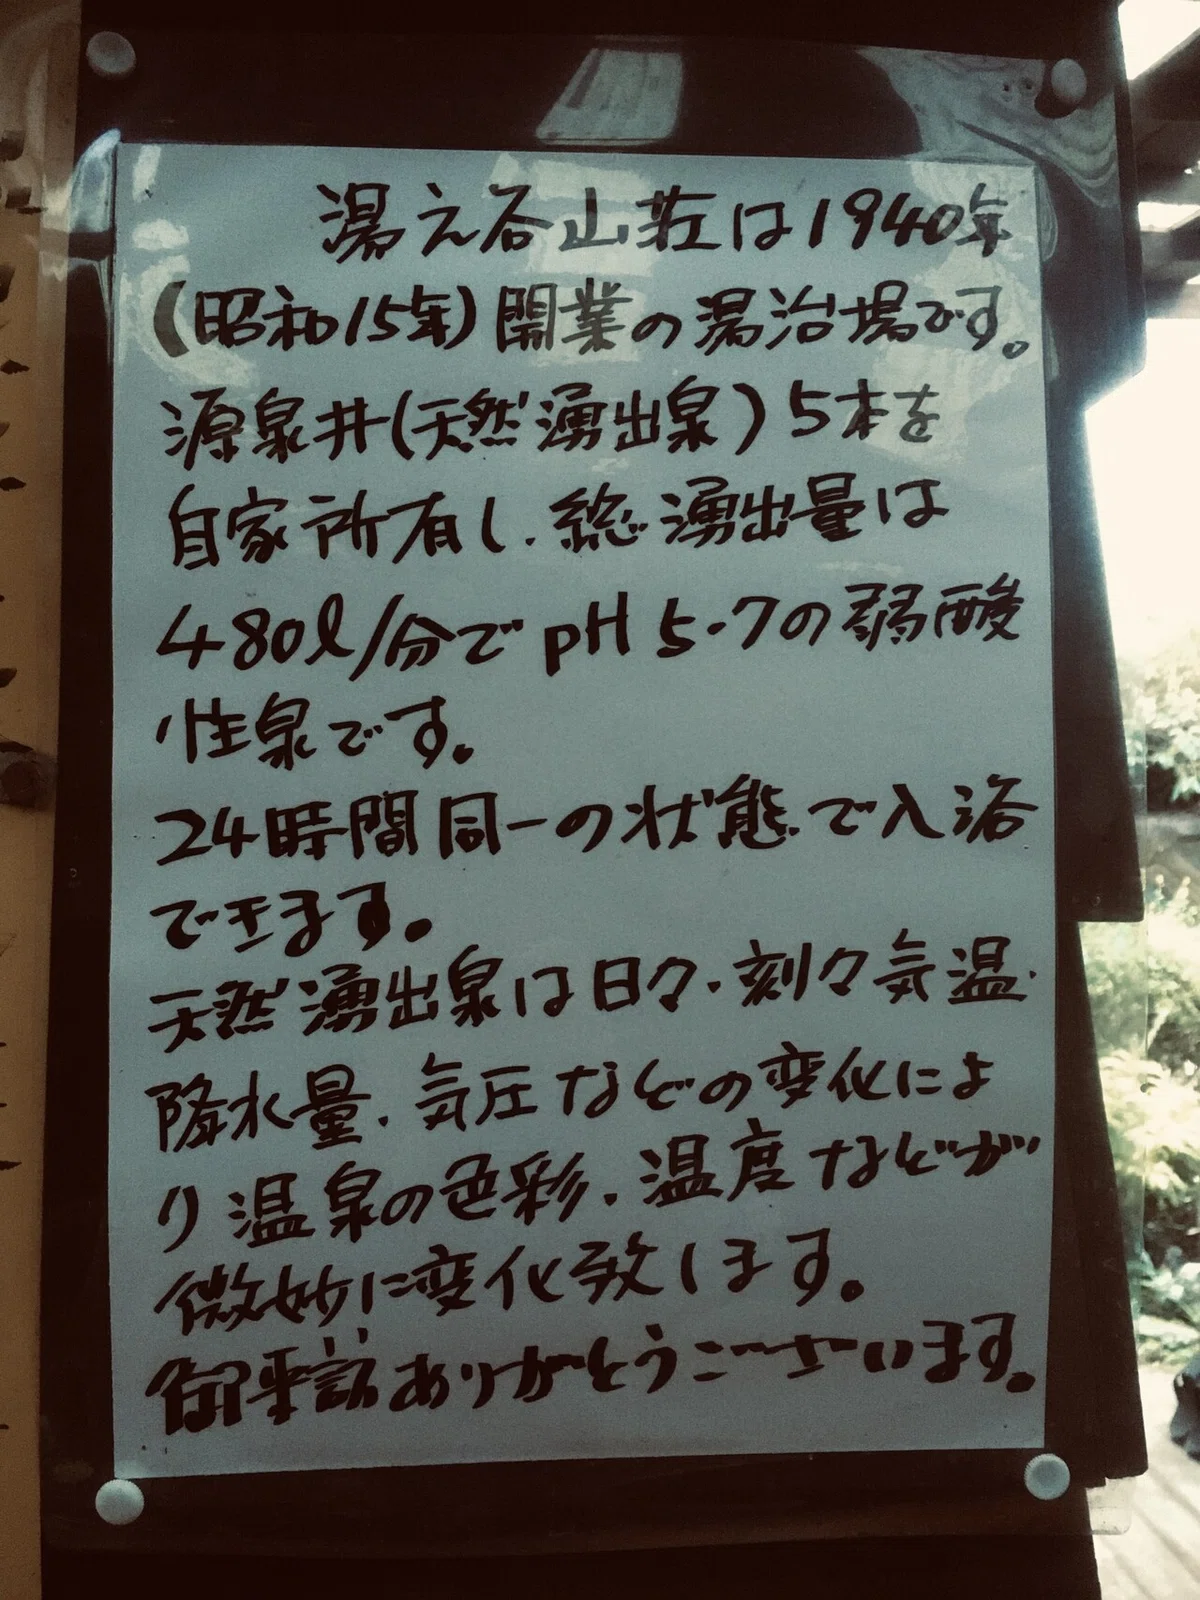 湯え谷山荘は1940年
(昭和15年)開業の湯治場です。
源泉井(天然湧出泉)5本を
自家所有し、総湧出量は
480ℓ/分でpH5.7の弱酸
性泉です。
24時間同一の状態で入浴
できます。
天然湧出泉は日々、刻々気温、
降水量、気圧などの変化によ
り温泉の色彩、温度などが
微妙に変化致します。
御来訪ありがとうございます。